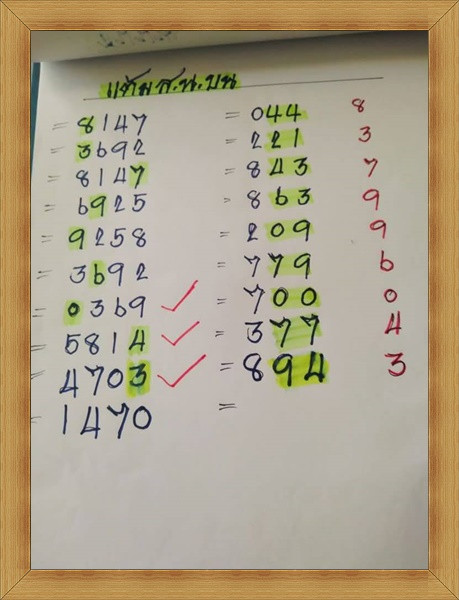 แต้ม ส.น. บน
= 8147 = 044 8
= 3692 = 221 3
= 8147 = 843 7
= 6925 = 863 9
= 9258 = 209 9
= 3692 = 779 6
= 0369 ✓ = 700 0
= 5814 ✓ = 377 4
= 4703 ✓ = 894 3
= 1470 =